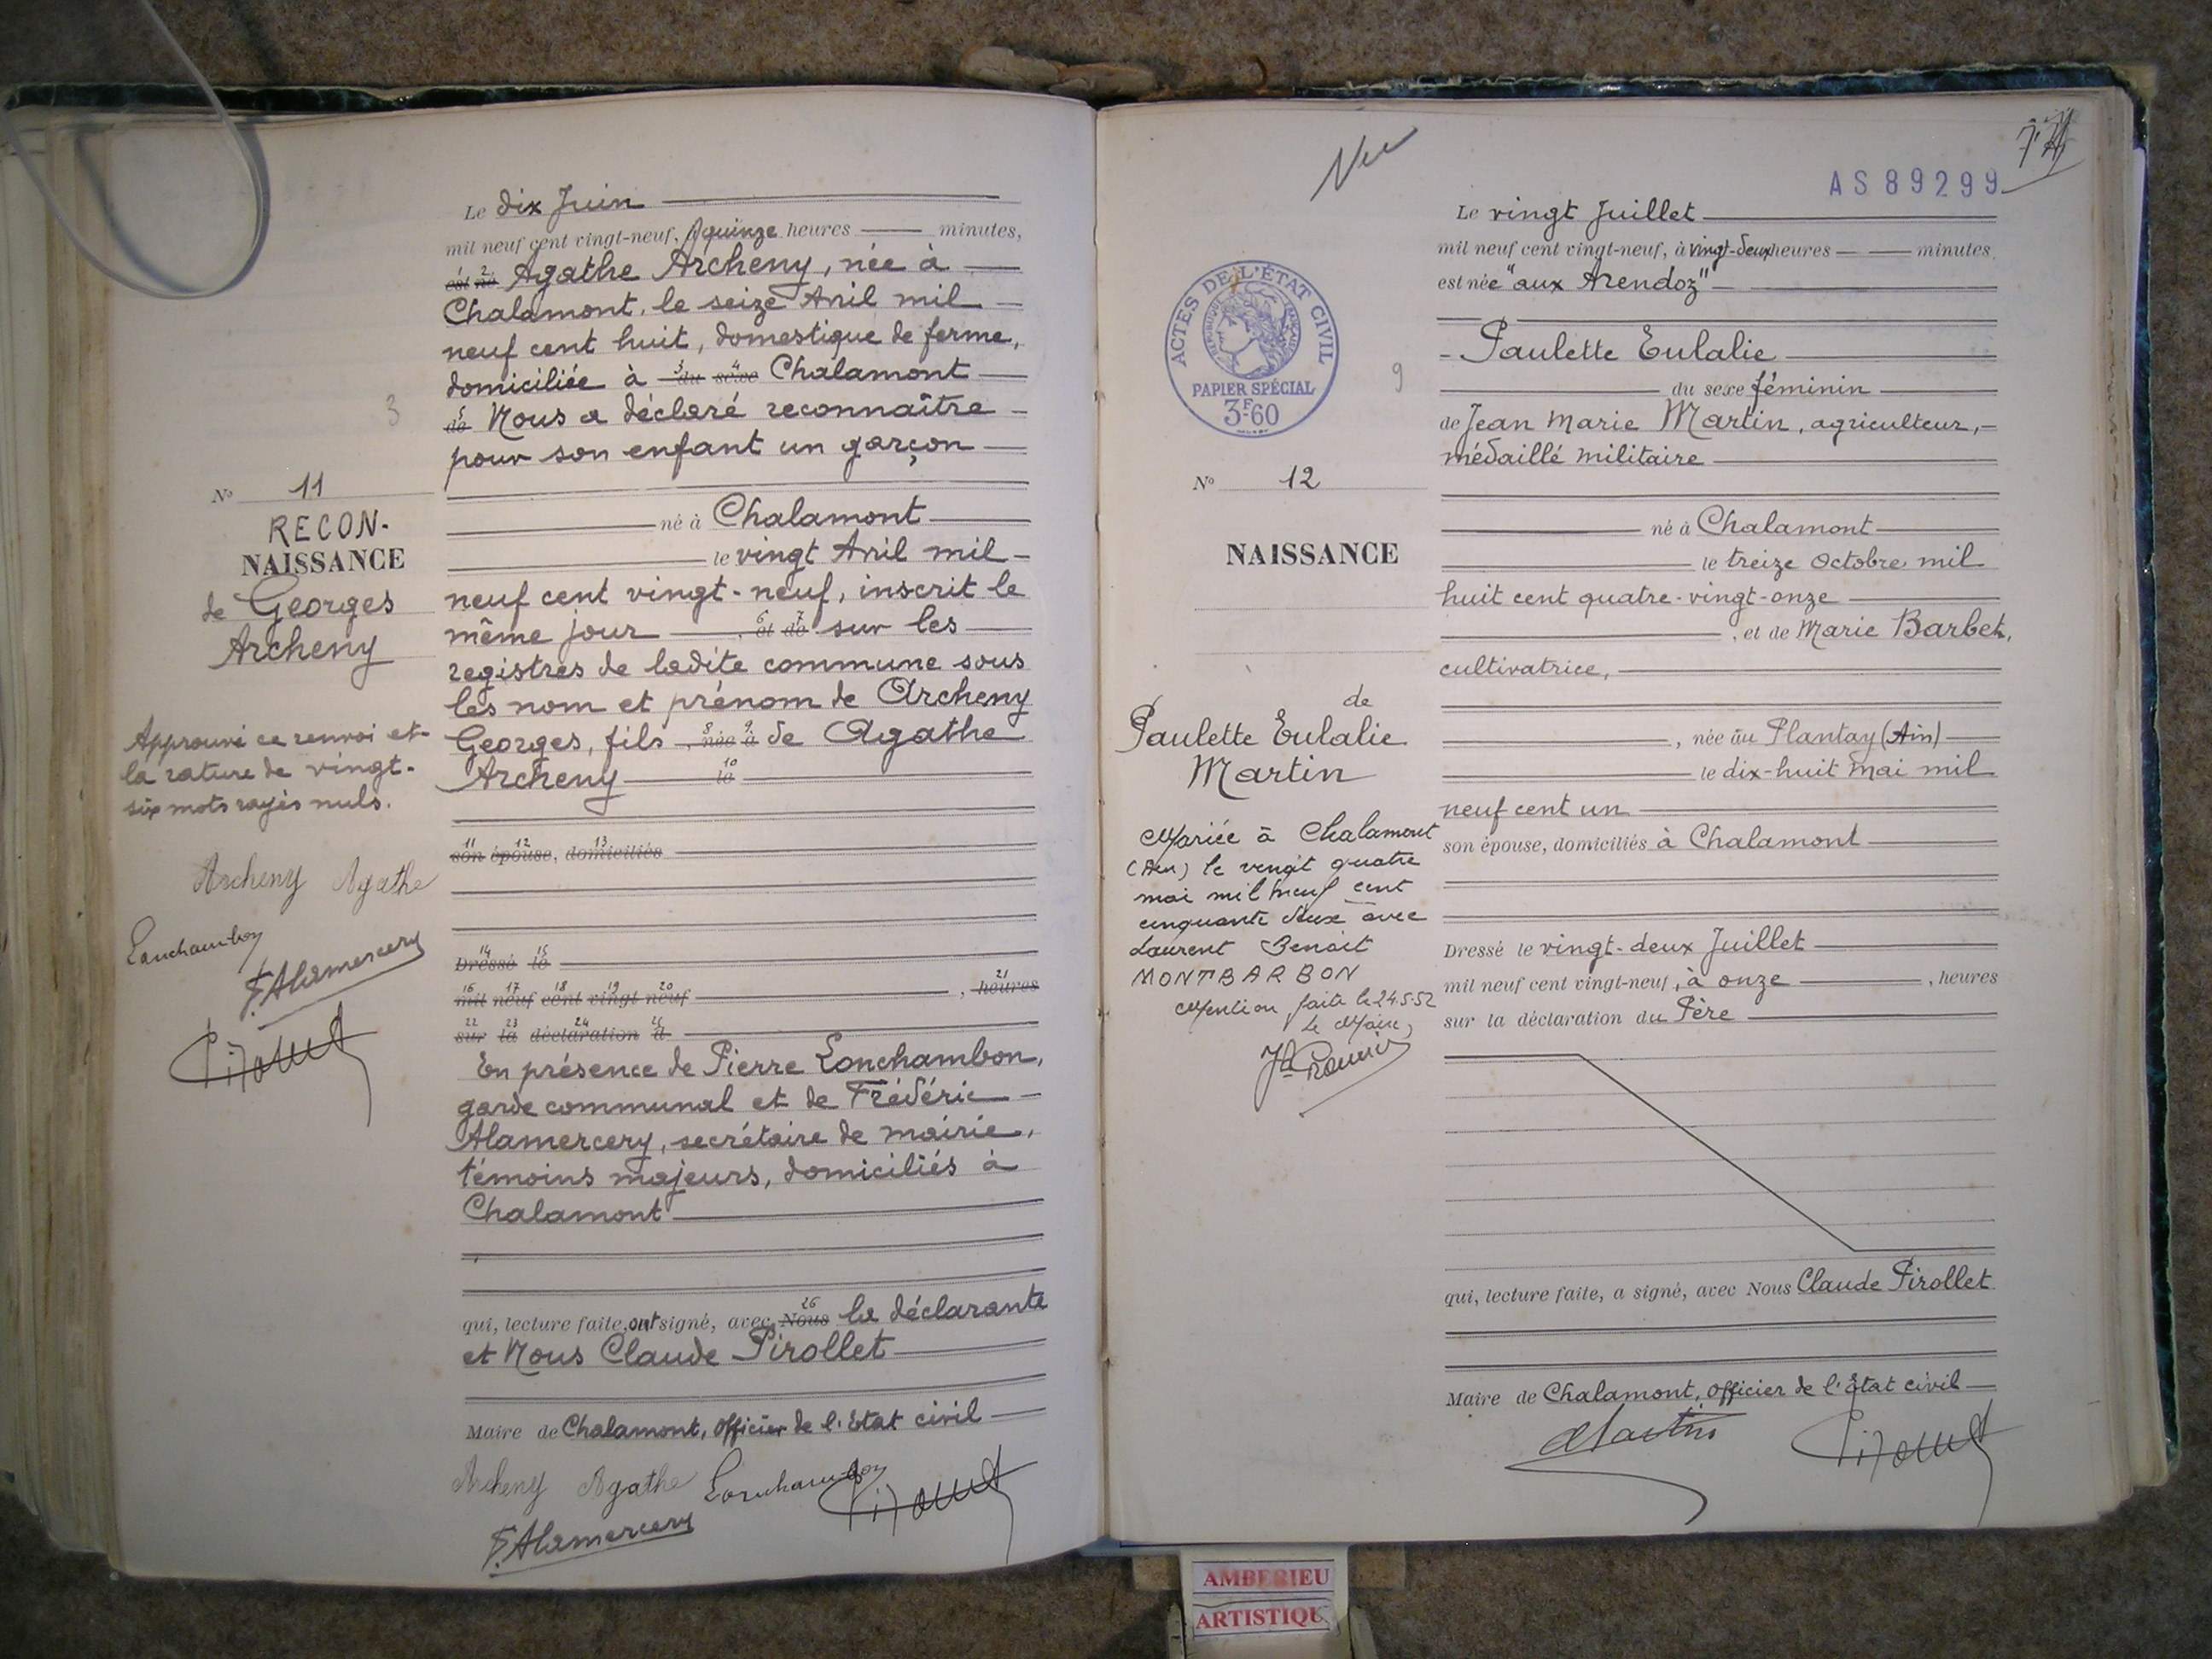 Le dix Juin
mil neuf cent vingt-neuf, à quinze heures minutes,
est né 2 Agathe Archeny, née à
Chalamont, le seize Avril mil
neuf cent huit, domestique de ferme,
domiciliée à 3 du 4 sexe Chalamont
5 de Nous a déclaré reconnaître
pour son enfant un garçon
3
No 11
RECON-
NAISSANCE
de Georges
Archeny
né à Chalamont
le vingt Avril mil
neuf cent vingt-neuf, inscrit le
même jour 6 et 7 de sur les
registres de ladite commune sous
les nom et prénom de Archeny
Georges, fils 8 née 9 à de Agathe
Archeny 10 le
Approuvé ce renvoi et
la rature de vingt-
six mots rayés nuls.
Archeny Agathe
Lonchambon
F. Alamercery
11 son 12 épouse, 13 domiciliés
14 Dressé 15 le
16 mil 17 neuf 18 cent 19 vingt 20 neuf , 21 heures
22 sur 23 la 24 déclaration 25 d
En présence de Pierre Lonchambon,
garde communal et de Frédéric
Alamercery, secrétaire de mairie,
témoins majeurs, domiciliés à
Chalamont
qui, lecture faite, ont signé, avec 26 Nous la déclarante
et Nous Claude Pirollet
Maire de Chalamont, Officier de l'Etat civil
Archeny Agathe Lonchambon
F. Alamercery
AS 89299
Le vingt Juillet
mil neuf cent vingt-neuf, à vingt-deux heures minutes,
est née "aux Arendoz"
ACTES DE L'ÉTAT CIVIL
RÉPUBLIQUE FRANÇAISE
PAPIER SPÉCIAL
3F60
9
Paulette Eulalie
du sexe féminin
de Jean Marie Martin, agriculteur,
médaillé militaire
No 12
NAISSANCE
né à Chalamont
le treize Octobre mil
huit cent quatre-vingt-onze
, et de Marie Barbet,
cultivatrice,
de
Paulette Eulalie
Martin
, née au Plantay (Ain)
le dix-huit Mai mil
neuf cent un
son épouse, domiciliés à Chalamont
Mariée à Chalamont
(Ain) le vingt quatre
mai mil neuf cent
cinquante deux avec
Laurent Benoit
MONTBARBON
Mention faite le 24.5.52
Le Maire,
Dressé le vingt-deux Juillet
mil neuf cent vingt-neuf, à onze , heures
sur la déclaration du Père
qui, lecture faite, a signé, avec Nous Claude Pirollet
Maire de Chalamont, Officier de l'Etat civil
Martin
AMBERIEU
ARTISTIQU